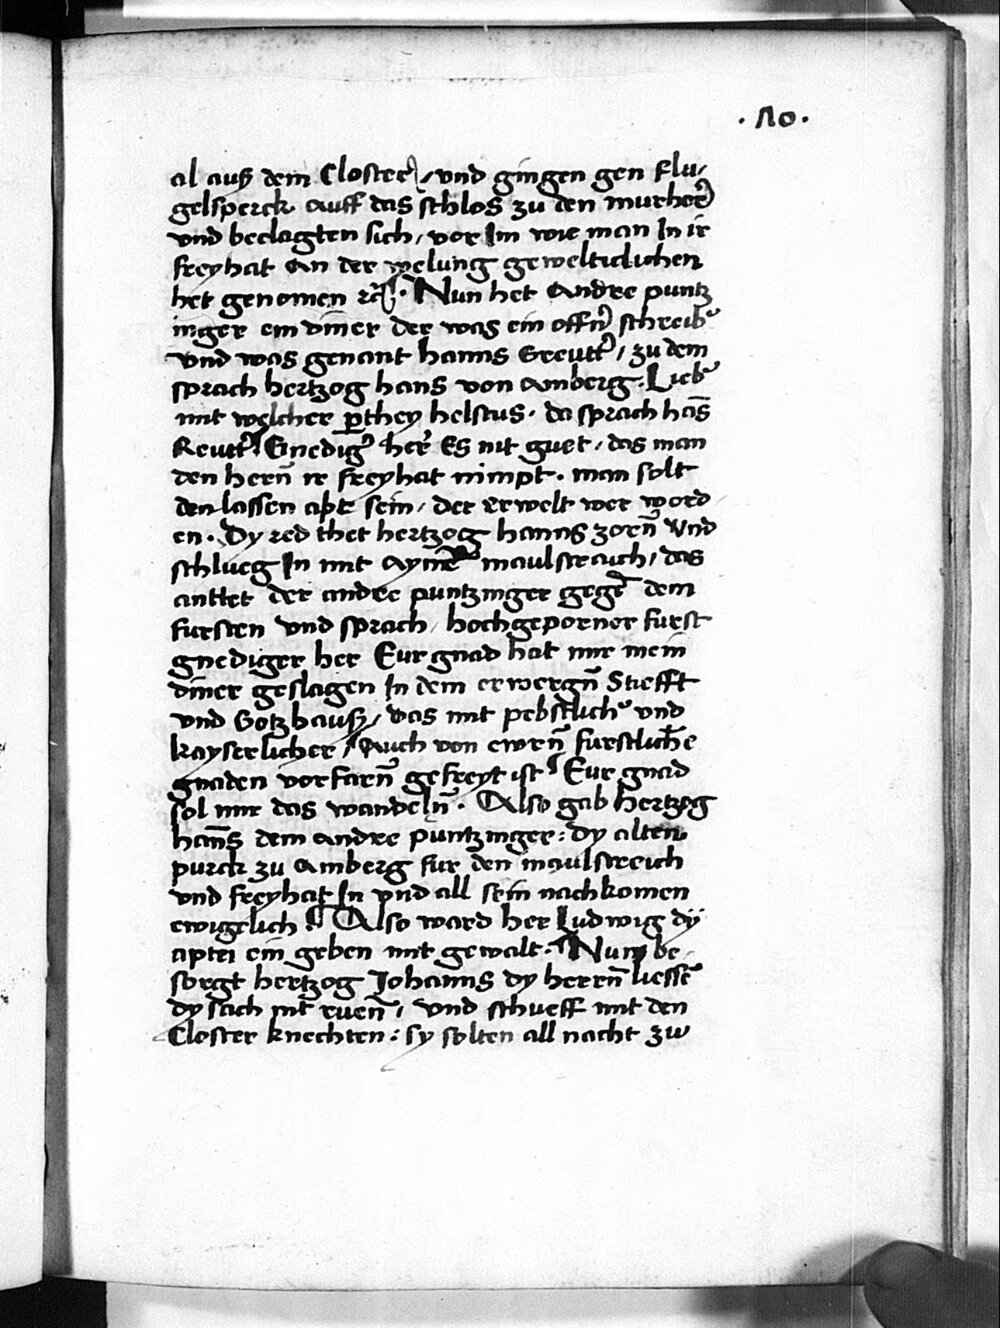 · 70 ·
al auß dem Closter / vnd gingen gen Flu,
gelsperck auff das schlos zu den murher
vnd beclagten sich / vor Im wie man In ir
freyhat An der welung gewelticlichen
het genomen rc̃ · Nun het Andre puntz
inger ein diner der was ein offñ schreib'
vnd was genant hanns Greutt' / zu dem
sprach hertzog hans von Amberg · Lieb'
mit welcher p̱they helstus · da sprach hãs
Reutt' Gnedig' her' Es nit guet / das man
den herñ ir freyhat nimpt · man solt
den lassen apt sein / der erwelt wer word
en · Dy red thet hertzog hanns zorñ vnd
schlueg In mit Aynẽ maulstraich / das
anttet der andre puntzinger gegẽ dem
fursten vnd sprach / hochgeporner furst
gnediger her Eur gnad hat mir mein
diner geslagen In dem erwergñ Stiefft
vnd Gotzhauß / das mit pebstlich' vnd
kayserlicher / Auch von ewrñ furstlichẽ
gnaden vorfarñ gefreyt ist Eur gnad
sol mir das wandelñ · Also gab hertzog
hañs dem Andre puntzinger : dy alten
purck zu Amberg fur den maulstreich
vnd freyhat In vnd all sein nachkomen
ewigelich Also ward her Ludwig dÿ
aptei ein geben mit gewalt · Nun be,
sorgt hertzog Johanns dy herrñ liessẽ
dy sach nit rueñ / vnd schueff mit den
Closter knechten : sy solten all nacht zw